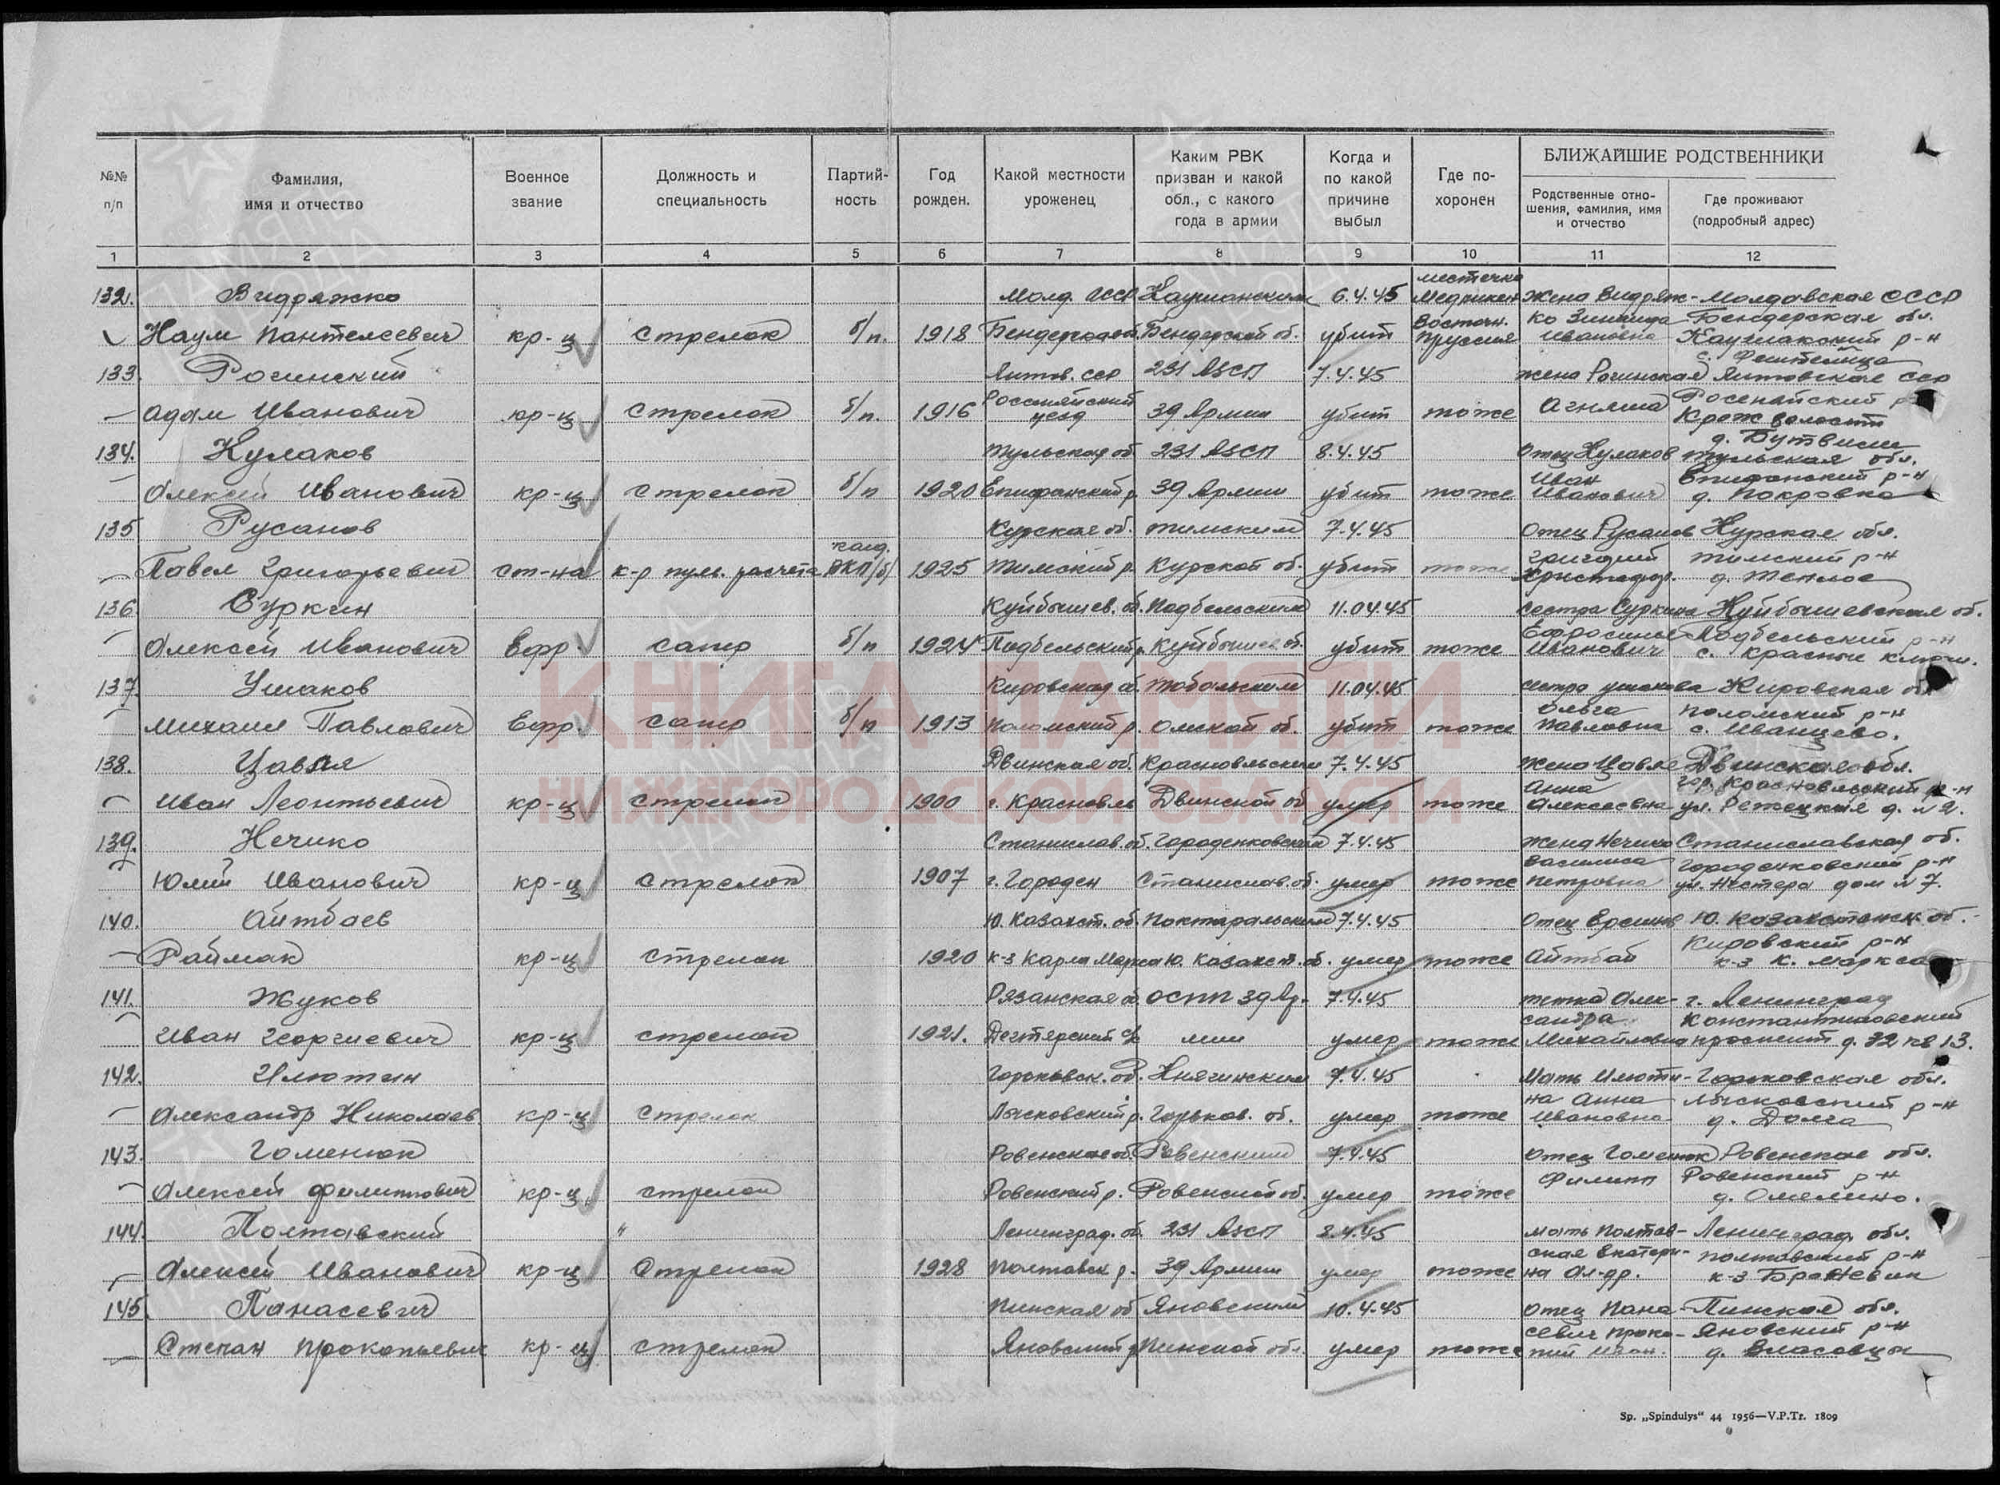 №№ п/п
Фамилия, имя и отчество
Военное звание
Должность и специальность
Партий-ность
Год рожден.
Какой местности уроженец
Каким РВК призван и какой обл., с какого года в армии
Когда и по какой причине выбыл
Где по-хоронен
БЛИЖАЙШИЕ РОДСТВЕННИКИ
Родственные отно-шения, фамилия, имя и отчество
Где проживают (подробный адрес)
1 2 3 4 5 6 7 8 9 10 11 12
132. Видряжко Молд. ССР Каушанским 6.4.45 местечко Медникен жена Видряж- Молдавская СССР
Наум Пантелеевич кр-ц стрелок б/п. 1918 Бендерской об. убит Восточн. Пруссия ко Зинаида Ивановна Бендерская обл. Каушанский р-н
с. Фештелица
133. Рогинский Литов. ССР 231 АЗСП 7.4.45 жена Рогинская Литовская ССР
Адам Иванович кр-ц стрелок б/п. 1916 уезд 39 Армии убит тоже Росенайский
Крож волости
134. Кулаков Тульская об. 231 АЗСП 8.4.45 отец Кулаков Тульская обл.
Алексей Иванович кр-ц стрелок б/п 1920 Епифанский р. 39 Армии убит тоже Иван Иванович Епифанский р-н д. Покровка
135 Русанов Курская об. Тимским 7.4.45 отец Русанов Курская обл.
Павел Григорьевич ст-на к-р пул. расчета канд. ВКП/б/ 1925 Тимский р. Курской об. убит тоже Григорий Христофор. Тимский р-н д. Теплое
136 Суркин Куйбышев. об. Подбельским 11.04.45 сестра Суркина Куйбышевская об.
Алексей Иванович Ефр. сапер б/п 1924 Подбельский р. Куйбышев. об. убит тоже Подбельский р-н с. Красные ключи.
137. Ушаков Кировская об. Тобольским 11.04.45 сестра Ушакова Кировская об
Михаил Павлович Ефр. сапер б/п 1913 Поломский р. Омской об. убит тоже Ольга Павловна Поломский р-н с. Иванцево.
138. Цавля Двинская об. 7.4.45 жена Цавля Двинская обл.
Иван Леонтьевич кр-ц стрелок 1900 Двинской об. умер тоже Анна Алексеевна ул. Режецкая д. №2.
139. Нечипо Станислав. об. Городенковским 7.4.45 жена Нечипо Станиславская об.
Юлий Иванович кр-ц стрелок 1907 г. Городен Станислав. об. умер тоже Василиса Петровна Городенковский р-н ул. Нестера дом №7.
140. Айтбаев Ю. Казахст. об. 7.4.45 отец Ю. Казахстанск. об.
Раймак кр-ц стрелок 1920 к-з Карла Маркса Ю. Казахст. об. умер тоже Айтбай Кировский р-н к-з К. Маркса
141. Жуков Рязанская об. ОСПП 39 Ар- 7.4.45 тетка Алек- г. Ленинград
Иван Георгиевич кр-ц стрелок 1921. мии умер тоже сандра Михайловна Константиновский проспект д. 22 кв 13.
142. Илютин Горьковск. об. Княгинским 7.4.45 Мать Илюти- Горьковская обл.
Александр Николаев. кр-ц стрелок Лысковский р. Горьков. об. умер тоже на Анна Ивановна Лысковский р-н
143. Гоменюк Ровенская об. Ровенский 7.4.45 отец Гоменюк Ровенская обл.
Алексей Филиппович кр-ц. стрелок Ровенский р. Ровенской об. умер тоже Филипп Ровенский р-н д. Омелино.
144. Полтавский " Ленинград. об. 231 АЗСП 8.4.45 мать Полтав- Ленинград. обл.
Алексей Иванович кр-ц стрелок 1928 Полтавск р. 39 Армии умер тоже ская Екатери- на Ал-др. Полтавский р-н
145. Панасевич Пинская об. Яновским 10.4.45 отец Пана- Пинская обл.
Степан Прокопьевич кр-ц стрелок Яновский р Пинской обл. умер тоже севич Проко- пий Иван. Яновский р-н д. Власовцы
КНИГА ПАМЯТИ
НИЖЕГОРОДСКОЙ ОБЛАСТИ
Sp. „Spindulys“ 44 1956—V.P.Tr. 1809